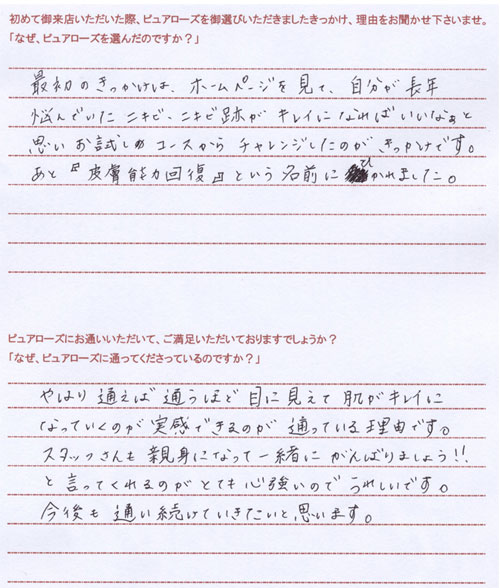 初めて御来店いただいた際、ピュアローズを御選びいただきましたきっかけ、理由をお聞かせ下さいませ。
「なぜ、ピュアローズを選んだのですか？」
最初のきっかけは、ホームページを見て、自分が長年
悩んでいた ニキビ、ニキビ跡が キレイに なれば いいなぁと
思い お試しの コースから チャレンジしたのが きっかけです。
あと『皮膚能力回復』という 名前に ひかれました。
ピュアローズにお通いいただいて、ご満足いただいておりますでしょうか？
「なぜ、ピュアローズに通ってくださっているのですか？」
やはり 通えば 通うほど 目に見えて 肌が キレイに
なっていくのが 実感できるのが 通っている 理由です。
スタッフさんも 親身になって 一緒に がんばりましょう!!
と 言ってくれるのが とても 心強いので うれしいです。
今後も 通い続けていきたいと 思います。